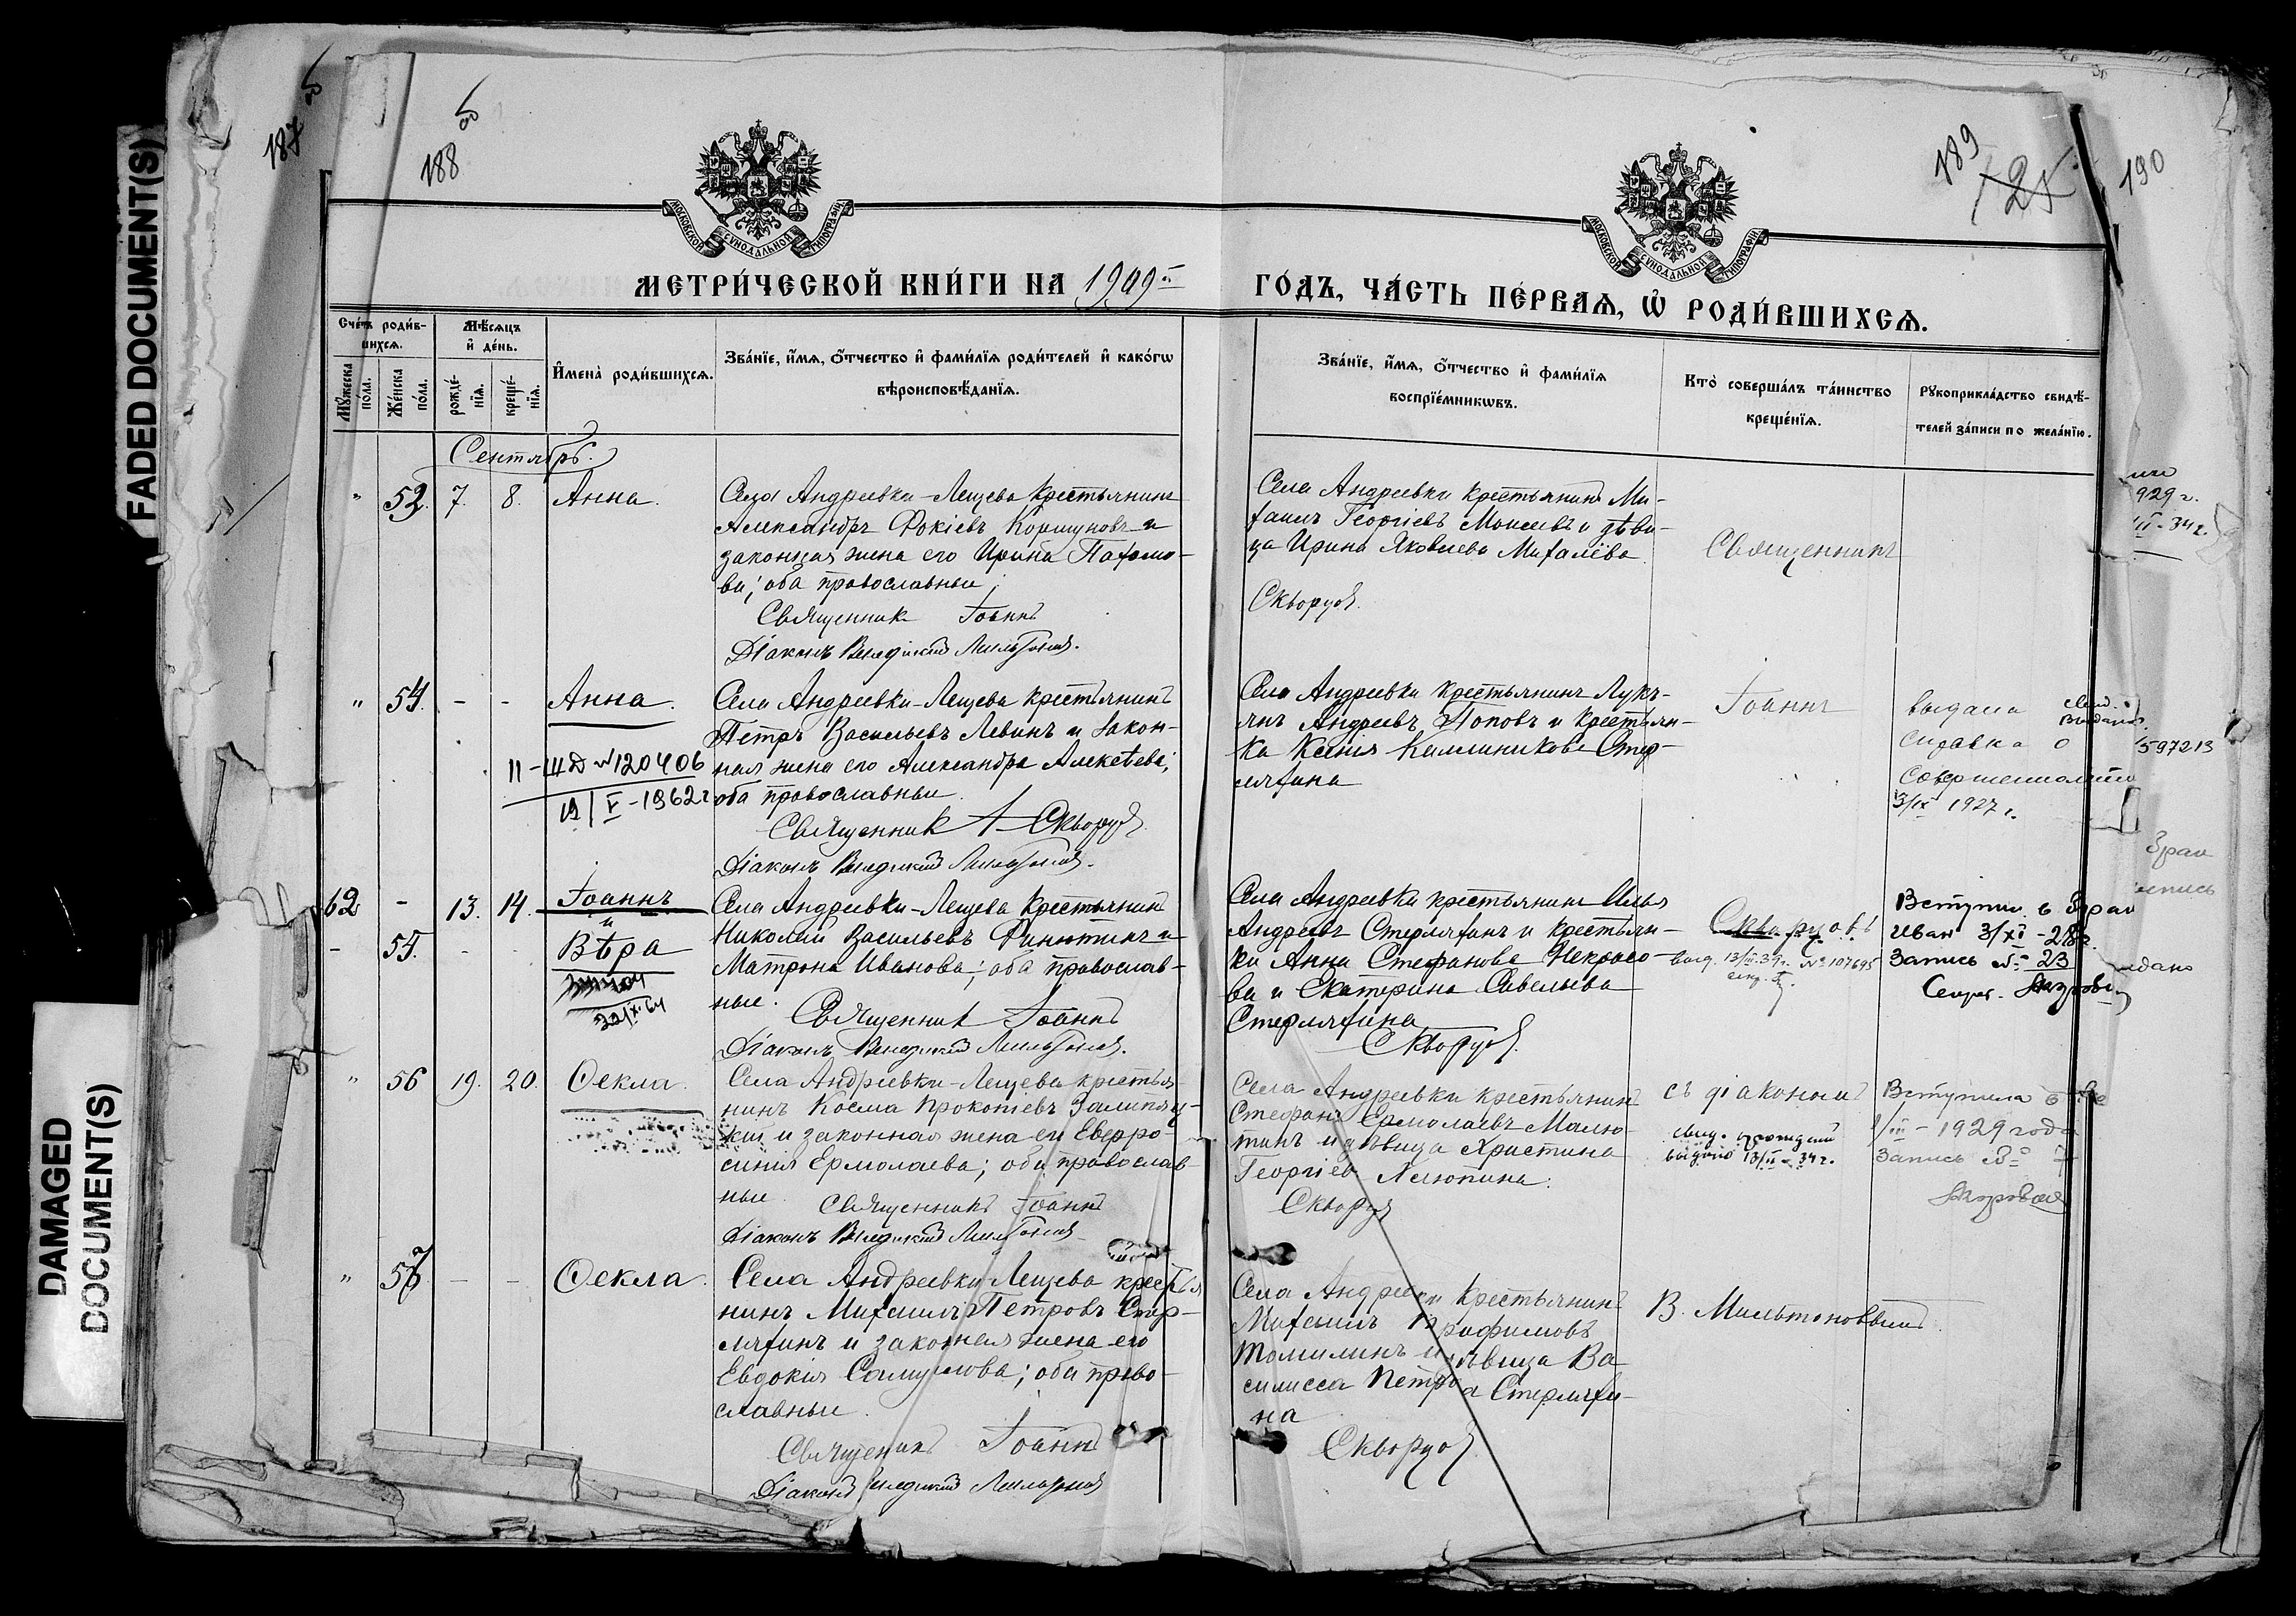 FADED DOCUMENT(S)
DAMAGED
DOCUMENT(S)
187
188
189
125
190
МОСКОВСКОЙ СѴНОДАЛЬНОЙ ТИПОГРАФІИ
МОСКОВСКОЙ СѴНОДАЛЬНОЙ ТИПОГРАФІИ
МЕТРИ́ЧЕСКОЙ КНИ́ГИ НА 1909й
ГО́ДЪ, ЧА́СТЬ ПЕ́РВАѦ, Ѡ РОДИ́ВШИХСѦ.
Сче́тъ роди́в-
шихсѧ.
Мѣ́сѧцъ
и҆ де́нь.
Мꙋ́жеска
по́ла.
Же́нска
по́ла.
рожде́-
нїѧ.
креще́-
нїѧ.
И҆мена̀ роди́вшихсѧ.
Зва́нїе, и҆́мѧ, ѻ҆́тчество и҆ фами́лїѧ роди́телей и҆ како́гѡ
вѣроисповѣ́данїѧ.
Зва́нїе, и҆́мѧ, ѻ҆́тчество и҆ фами́лїѧ
воспрїе́мникѡвъ.
Кто̀ соверша́лъ та́инство
креще́нїѧ.
Рꙋкоприкла́дство свидѣ́-
телей за́писи по жела́нїю.
Сентябрь.
" 53. 7. 8. Анна.
Села Андреевки-Лещева крестьянинъ
Александръ Фокіевъ Коршуновъ и
законная жена его Ирина Пахомо-
ва; оба православные
Священникъ Іоаннъ
Діаконъ Венедиктъ Мильтоновъ.
Села Андреевки крестьянинъ Ми-
хаилъ Георгіевъ Моисеевъ и дѣви-
ца Ирина Яковлева Михалёва
Скворцовъ.
Священникъ
" 54. - - Анна.
II-ШД №120406
19/V-1962г
Села Андреевки-Лещева крестьянинъ
Петръ Васильевъ Левинъ и закон-
ная жена его Александра Алексѣева;
оба православные.
Священникъ І Скворцовъ
Діаконъ Венедиктъ Мильтоновъ.
Села Андреевки крестьянинъ Лукь-
янъ Андреевъ Поповъ и крестьян-
ка Ксенія Калинникова Стер-
ляхина
Іоаннъ
выдана
справка о
совершеннолетии
3/IX 1927 г.
597213
62 - 13. 14. Іоаннъ
и
- 55. - - Вѣра
22/X-64
Села Андреевки-Лещева крестьянинъ
Николай Васильевъ Финютинъ и
Матрона Иванова; оба православ-
ные.
Священникъ Іоаннъ
Діаконъ Венедиктъ Мильтоновъ.
Села Андреевки крестьянинъ Илья
Андреевъ Стерляхинъ и крестьян-
ка Анна Стефанова Некрасо-
ва и Екатерина Савельева
Стерляхина
Скворцовъ.
Скворцовъ
№107695
Вступил в брак
Иван 3/XI-28г.
Запись № 23
" 56 19. 20. Ѳекла.
Села Андреевки-Лещева крестья-
нинъ Косма Прокопіевъ Залипяц-
кій и законная жена его Евфро-
синія Ермолаева; оба православ-
ные.
Священникъ Іоаннъ
Діаконъ Венедиктъ Мильтоновъ
Села Андреевки крестьянинъ
Стефанъ Ермолаевъ Малю-
тинъ и дѣвица Христина
Георгіева
Скворцовъ
съ діакономъ
выдано 13/II-34г.
Вступила в
1/III-1929 года
Запись № 7
" 57 - - Ѳекла.
Села Андреевки Лещева крестья
нинъ Михаилъ Петровъ Стер-
ляхинъ и законная жена его
Евдокія Самуилова; оба право-
славные.
Священникъ Іоаннъ
Діаконъ Венедиктъ Мильтоновъ
Села Андреевки крестьянинъ
Михаилъ Трофимовъ
Томилинъ и дѣвица Ва
силисса Петрова Стерляхи-
на
Скворцовъ
В. Мильтоновымъ